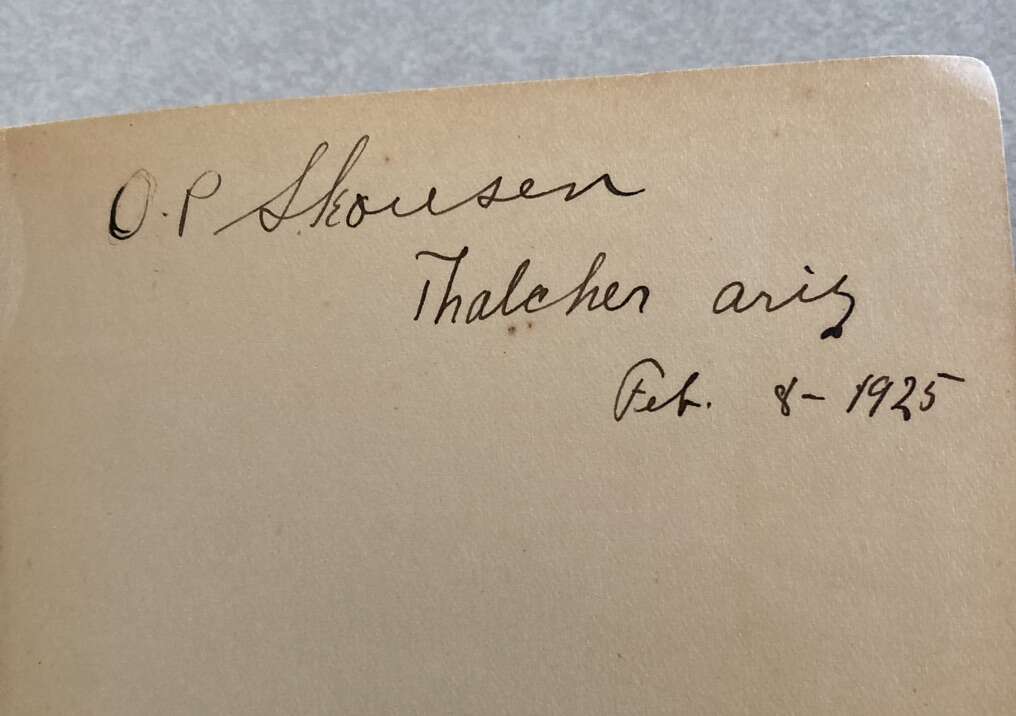 O.P Skousen
Thatcher ariz
Feb. 8-1925